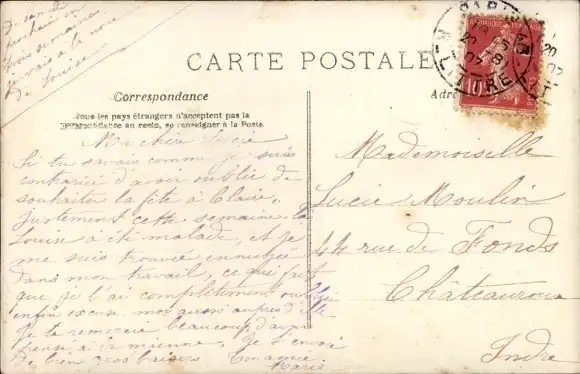 De samedi
prochain en
trois semaines
je vais a la noce
de Louise
CARTE POSTALE
Correspondance
Tous les pays étrangers n'acceptent pas la
correspondance au recto, se renseigner à la Poste.
Adre
PARIS
R. LITTRE
10
Ma chère Lucie
Si tu savais comme je suis
embariée d'avoir oublié de
souhaiter la fête à Claire,
Justement cette semaine la
Louise a été malade, et je
me suis trouvée ennuyée
dans mon travail, ce qui fait
que je l'ai complètement oublié
enfin excuse moi aussi auprès d'elle
Je te remercie beaucoup d'avoir
pensé à la mienne, Je t'envoie
De bien gros baisers Ton amie
Marie
Mademoiselle
Lucie Moulin
44 rue de Fonds
Châteauroux
Indre